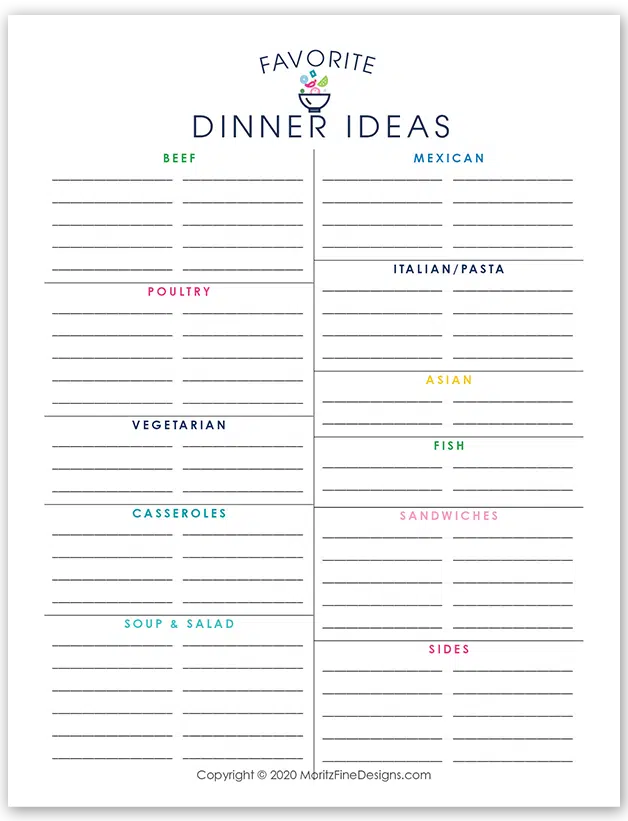 FAVORITE
DINNER IDEAS
BEEF
POULTRY
VEGETARIAN
CASSEROLES
SOUP & SALAD
MEXICAN
ITALIAN/PASTA
ASIAN
FISH
SANDWICHES
SIDES
Copyright © 2020 MoritzFineDesigns.com